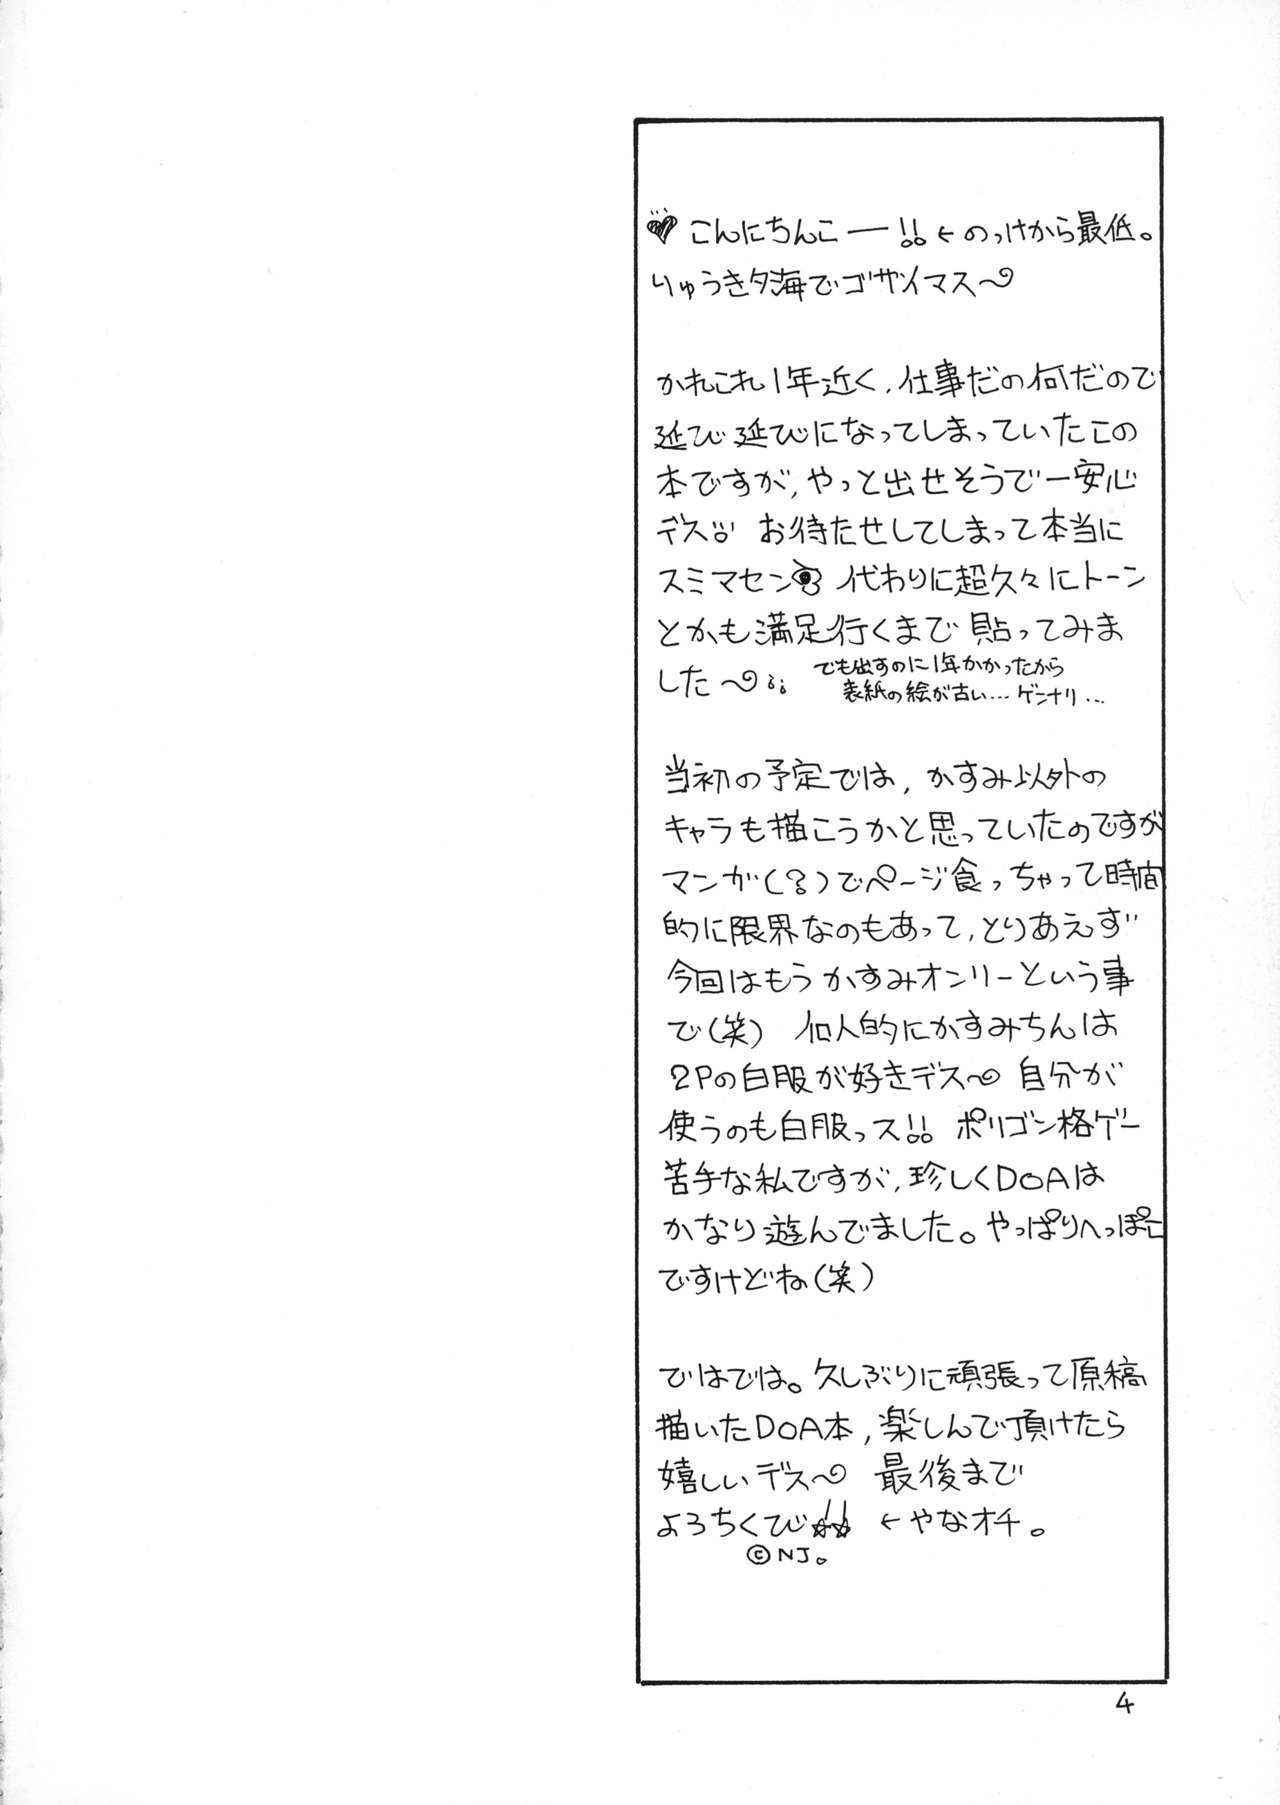 こんにちんこー!! ←のっけから最低。
りゅうき夕海でゴザイマス～
かれこれ1年近く、仕事だの何だので
延び延びになってしまっていたこの
本ですが、やっと出せそうで一安心
デス。 お待たせしてしまって本当に
スミマセン 代わりに超久々にトーン
とかも満足行くまで貼ってみま
した～
でも出すのに1年かかったから
表紙の絵が古い… ゲンナリ…
当初の予定では、かすみ以外の
キャラも描こうかと思っていたのですが
マンガ(?)でページ食っちゃって時間
的に限界なのもあって、とりあえず
今回はもうかすみオンリーという事
で(笑) 個人的にかすみちんは
2Pの白服が好きデス～ 自分が
使うのも白服っス!! ポリゴン格ゲー
苦手な私ですが、珍しくDOAは
かなり遊んでました。やっぱりへっぽこ
ですけどね(笑)
ではでは。久しぶりに頑張って原稿
描いたDOA本、楽しんで頂けたら
嬉しいデス～ 最後まで
よろちくび!! ←やなオチ。
©NJ。
4